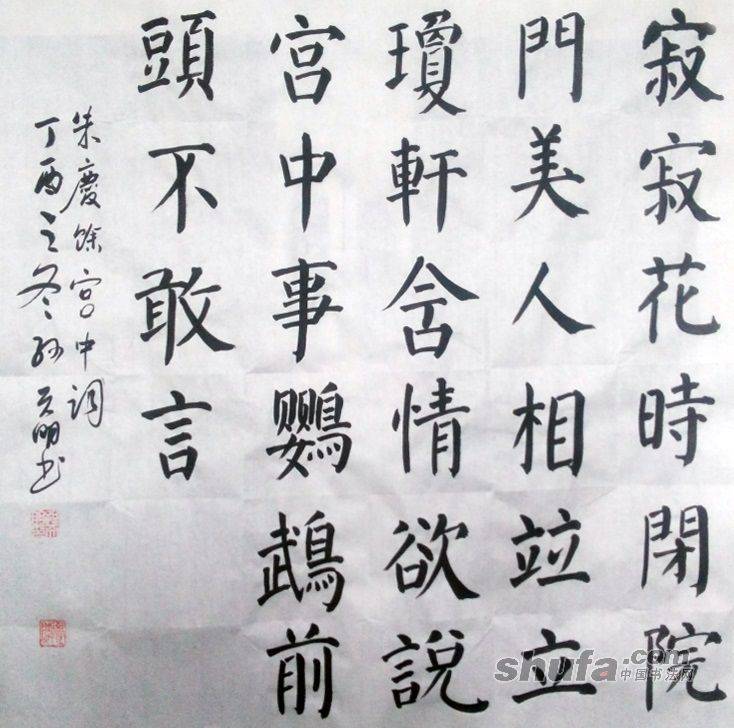 寂寂花時閉院
門美人相竝立
瓊軒含情欲說
宮中事鹦鵡前
頭不敢言
朱慶馀宮中詞
丁酉之冬孙天明书
shufa.com
中国书法网